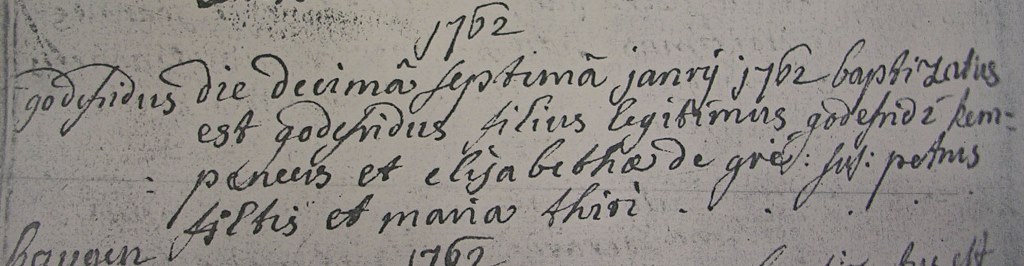 1762
godefridus die decimâ septimâ janrij 1762 baptizatus
est godefridus filius legitimus godefridi kem=
peneers et elisabethæ de gré: sus: petrus
et maria thiri
1762
est